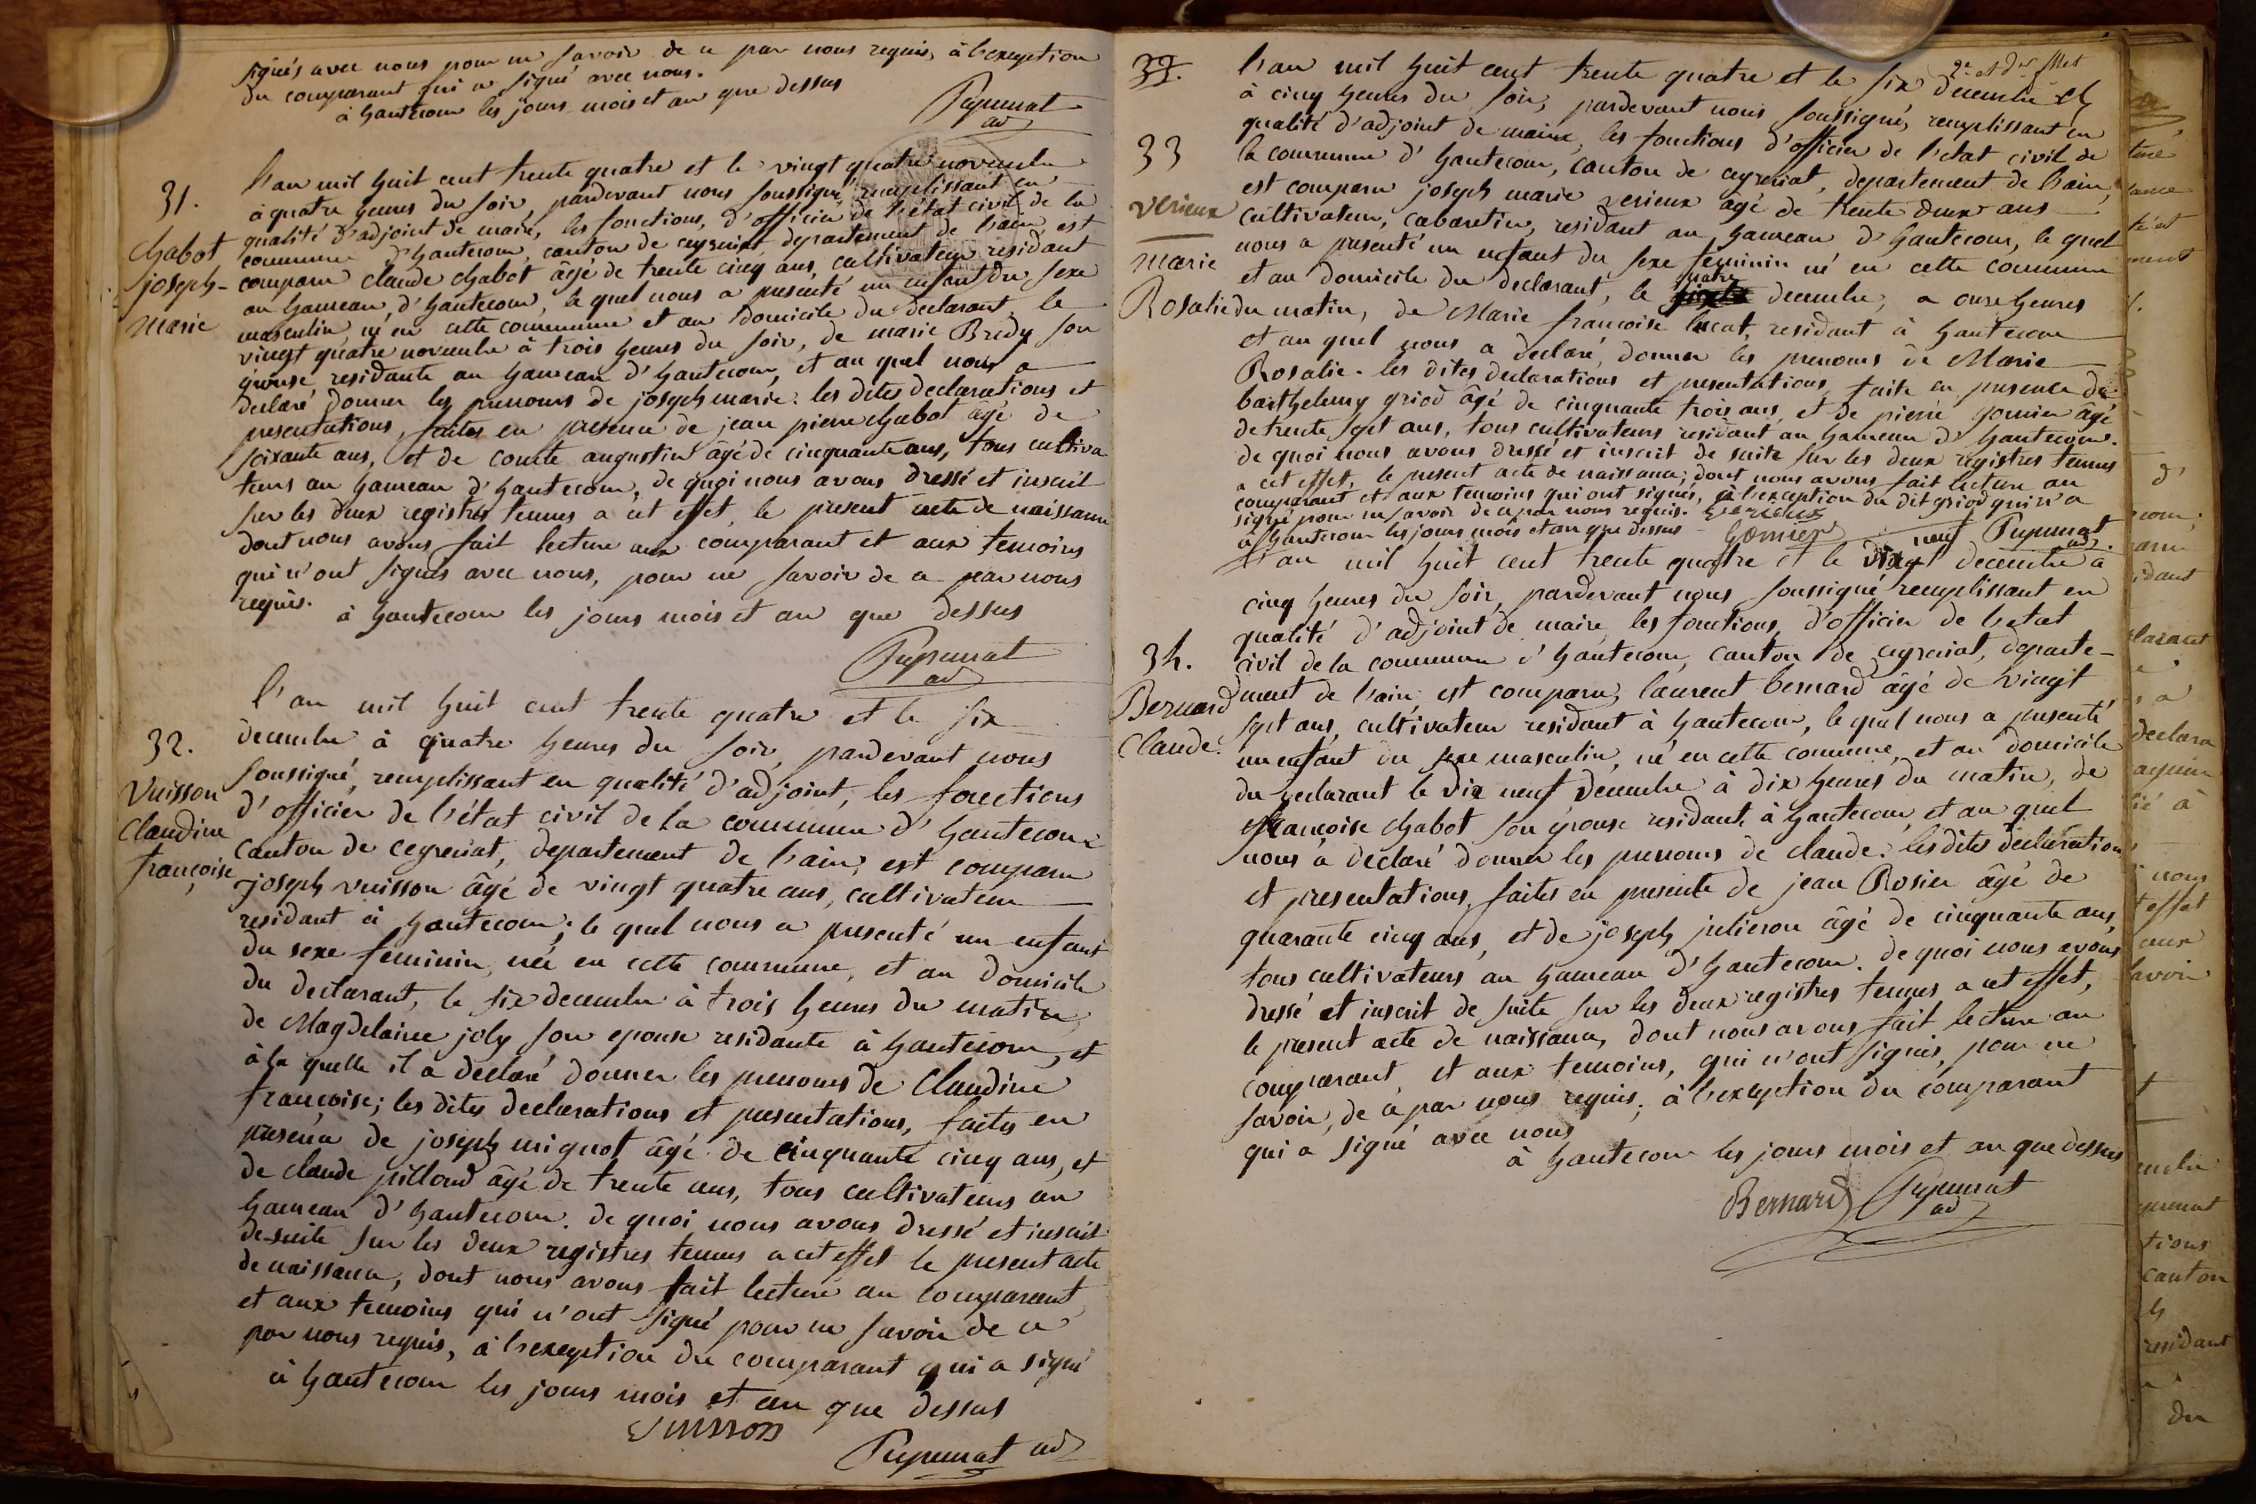 signés avec nous pour ne savoir de ce par nous requis, à l'exeption
du comparant qui a signé avec nous.
à hautecour les jours mois et an que dessus
Pupunat
ad
31.
Chabot
joseph-
marie
l'an mil huit cent trente quatre et le vingt quatre novembre
à quatre heures du soir, pardevant nous soussigné remplissant en
qualité d'adjoint de maire, les fonctions, d'officier de l'état civil de la
commune d'hautecour, canton de ceyzeriat departement de l'ain est
comparu claude chabot âgé de trente cinq ans, cultivateur residant
au hameau, d'hautecour, le quel nous a presenté un enfant du sexe
masculin, né en cette commune et au domicile du declarant, le
vingt quatre novembre à trois heures du soir, de marie Bredy son
épouse, residante au hameau d'hautecour, et au quel nous a
declaré donner les prenoms de joseph marie. les dites declarations et
presentations, faites en présence de jean pierre chabot âgé de
soixante ans, et de comte augustin âgé de cinquante ans, tous cultiva
teurs au hameau d'hautecour, de quoi nous avons dressé et inscrit
sur les deux registres tenues a cet effet, le present acte de naissance
dont nous avons fait lecture aux comparant et aux temoins
qui n'ont signés avec nous, pour ne savoir de ce par nous
requis. à hautecour les jours mois et an que dessus
Pupunat
ad
32.
Vuisson
Claudine
françoise
l'an mil huit cent trente quatre et le six
decembre à quatre heures du soir, pardevant nous
soussigné, remplissant en qualité d'adjoint, les fonctions
d'officier de l'état civil de la commune d'hautecour
canton de ceyzeriat, departement de l'ain, est comparu
joseph vuisson âgé de vingt quatre ans, cultivateur
residant à hautecour; le quel nous a presenté un enfant
du sexe feminin, née en cette commune, et au domicile
du declarant, le six decembre à trois heures du matin,
de Magdelaine joly son epouse residante à hautecour, et
à la quelle il a declaré donner les prenoms de Claudine
françoise; les dites declarations et presentations, faites en
presence de joseph mignot âgé de cinquante cinq ans, et
de claude pilloud âgé de trente ans, tous cultivateurs au
hameau d'hautecour. de quoi nous avons dressé et inscrit
de suite sur les deux registres tenues a cet effet le present acte
de naissance, dont nous avons fait lecture au comparant
et aux temoins qui n'ont signé pour ne savoir de ce
par nous requis, à l'exeption du comparant qui a signé
à hautecour les jours mois et an que dessus
Vuisson
Pupunat ad
33
verieux
marie
Rosalie
l'an mil huit cent trente quatre et le six decembre
à cinq heures du soir, pardevant nous soussigné, remplissant en
qualité d'adjoint de maire, les fonctions d'officier de l'etat civil de
la commune d'hautecour, canton de ceyzeriat, departement de l'ain,
est comparu joseph marie verieux agé de trente deux ans
cultivateur, cabaretier, residant au hameau d'hautecour, le quel
nous a presenté un enfant du sexe feminin né en cette commune
et au domicile du declarant, le quatre decembre, a onze heures
du matin, de Marie françoise residant à hautecour
et au quel nous a declaré, donner les prenoms de Marie
Rosalie. les dites declarations et presentations, faite en presence de
barthelemy griod âgé de cinquante trois ans, et de pierre gornier âgé
de trente sept ans, tous cultivateurs residant au hameau d'hautecour.
de quoi nous avons dressé et inscrit de suite sur les deux registres tenues
a cet effet, le present acte de naissance; dont nous avons fait lecture au
comparant et aux temoins qui ont signés, à l'exception du dit griod qui n'a
signé pour ne savoir de ce par nous requis. Verieux
à hautecour les jours mois et an que dessus Gornier Pupunat
ad
34.
Bernard
Claude.
l'an mil huit cent trente quatre et le dix neuf decembre à
cinq heures du soir, pardevant nous soussigné remplissant en
qualité d'adjoint de maire, les fonctions, d'officier de l'etat
civil de la commune d'hautecour, canton de ceyzeriat, departe-
ment de l'ain, est comparu, laurent bernard âgé de vingt
sept ans, cultivateur residant à hautecour, le quel nous a presenté
un enfant du sexe masculin, né en cette commune, et au domicile
du declarant le dix neuf decembre à dix heures du matin, de
françoise chabot son épouse residant à hautecour, et au quel
nous a declaré donner les prenoms de claude. les dites declaration
et presentations, faites en presente de jean Rosier âgé de
quarante cinq ans, et de joseph julieron âgé de cinquante ans,
tous cultivateurs au hameau d'hautecour. de quoi nous avons
dressé et inscrit de suite sur les deux registres tenues a cet effet,
le present acte de naissance, dont nous avons fait lecture au
comparant, et aux temoins, qui n'ont signés, pour ne
savoir, de ce par nous requis; à l'exeption du comparant
qui a signé avec nous
à hautecour les jours mois et an que dessus
Bernard Pupunat
ad